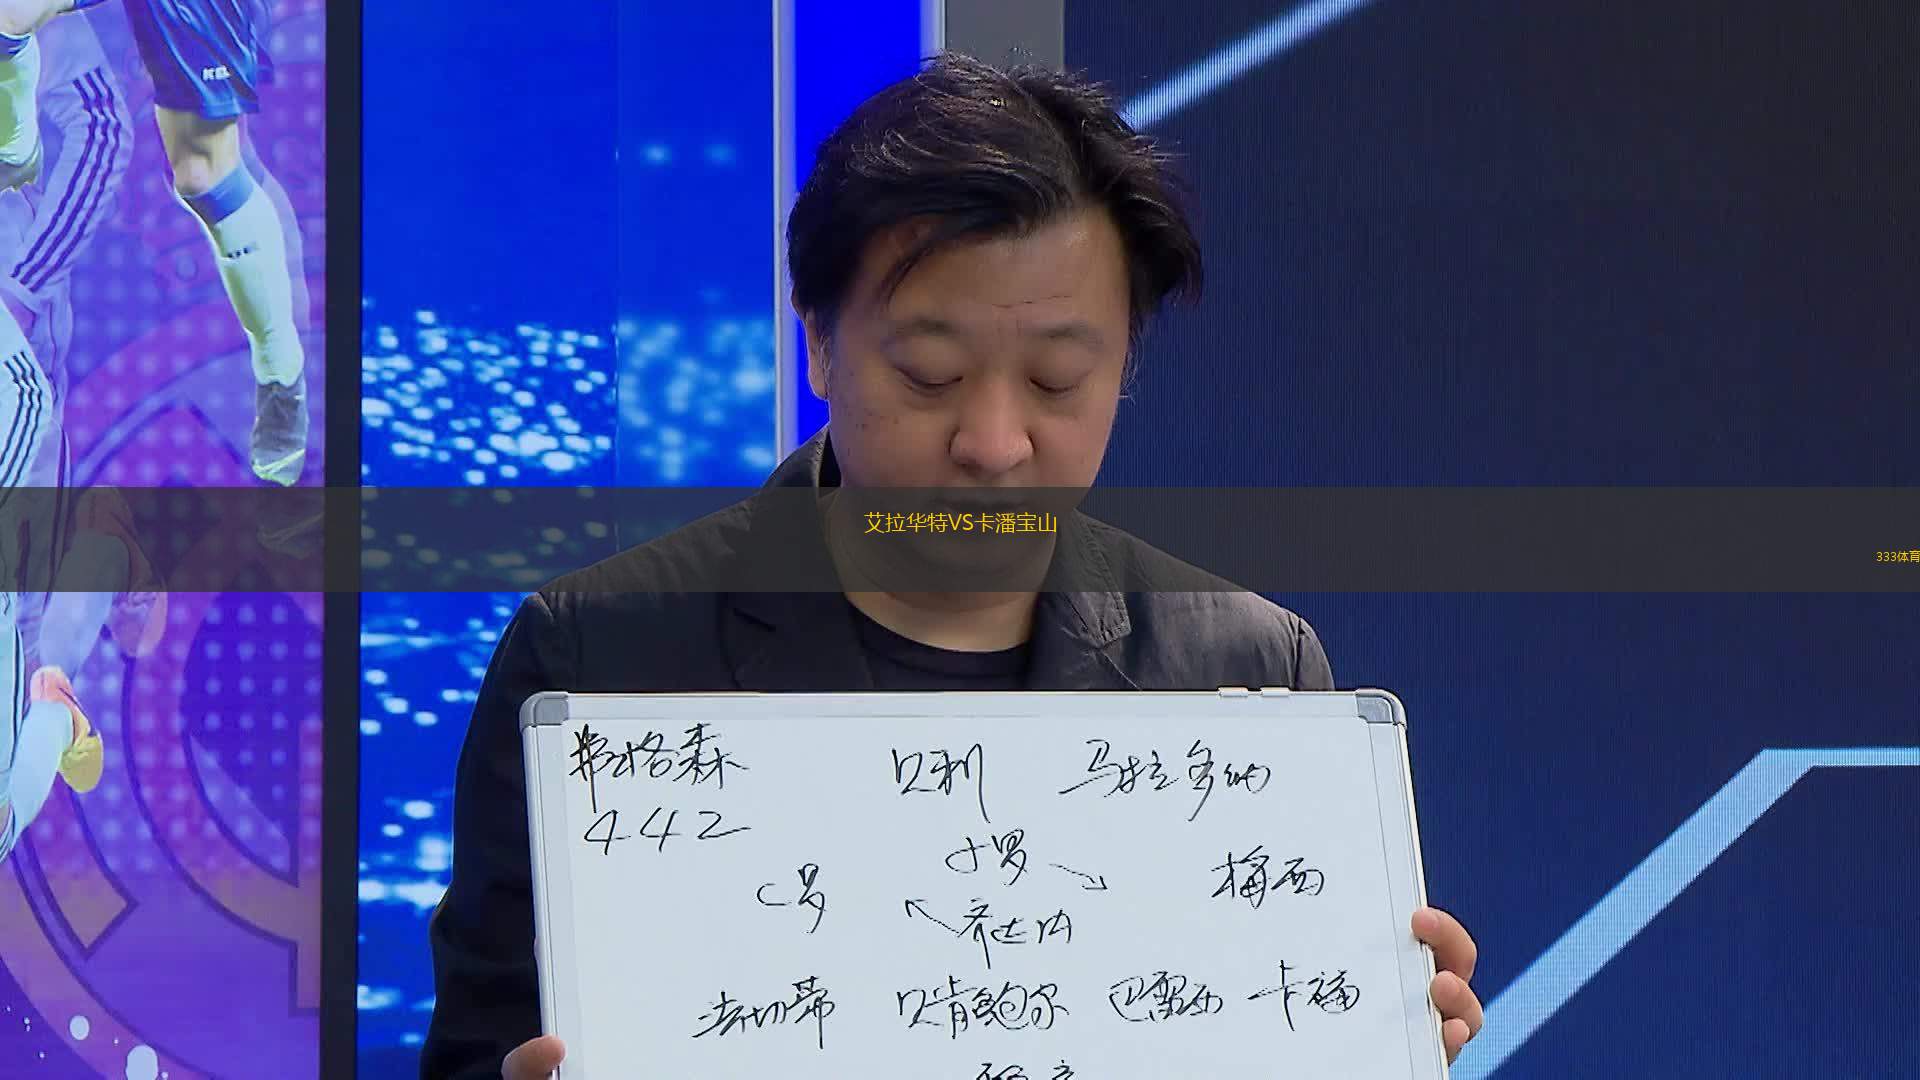 艾拉华特VS卡潘宝山
333体育
弗格森 贝利 马拉多纳
442
小罗
C罗 梅西
齐达内
法切蒂 贝肯鲍尔 巴雷西 卡福